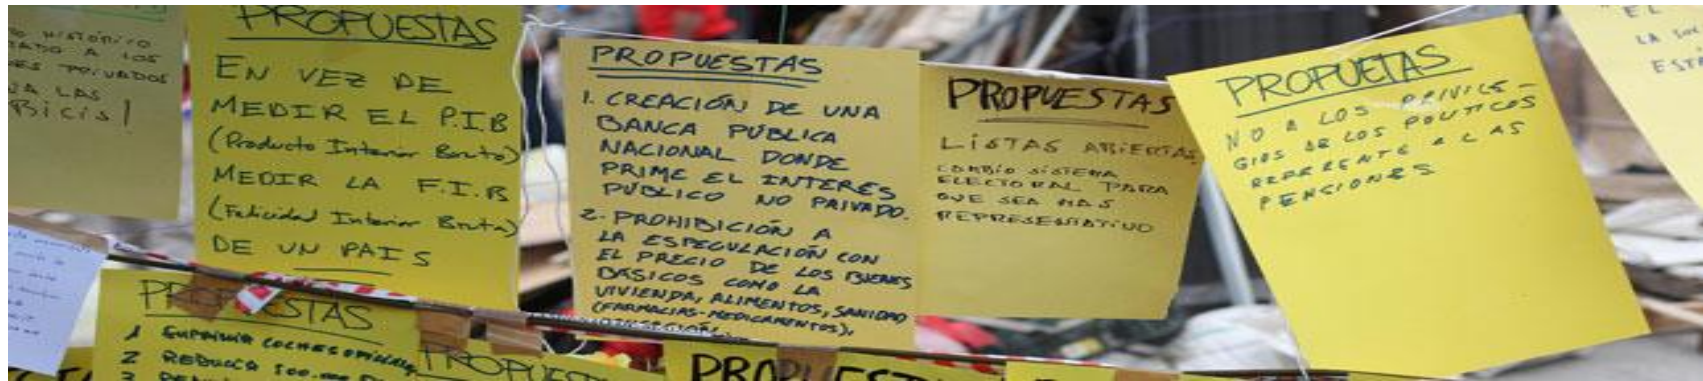 HISTÓRICO
A LOS
PRIVADOS
LAS
BiCiS!
PROPUESTAS
EN VEZ DE
MEDIR EL P.I.B
(Producto Interior Bruto)
MEDIR LA F.I.B
(Felicidad Interior Bruta)
DE UN PAIS
PROPUESTAS
1. CREACIÓN DE UNA
BANCA PÚBLICA
NACIONAL DONDE
PRIME EL INTERES
PÚBLICO NO PRIVADO.
2. PROHIBICIÓN A
LA ESPECULACIÓN CON
EL PRECIO DE LOS BIENES
BÁSICOS COMO LA
VIVIENDA, ALIMENTOS, SANIDAD
(FARMACIAS-MEDICAMENTOS),
PROPUESTAS
LiSTAS ABiERTAS
CAMBiO SiSTEMA
ELECTORAL PARA
QUE SEA MAS
REPRESENTATIVO
PROPUETAS
NO A LOS PRIVILE-
GIOS DE LOS POLITICOS
REFERENTE A LAS
PENSIONES
EL
LA
PROPUESTAS
1 SUPRIMIR COCHES OFICIALES
2
3
PROPUESTAS
PROPUESTAS